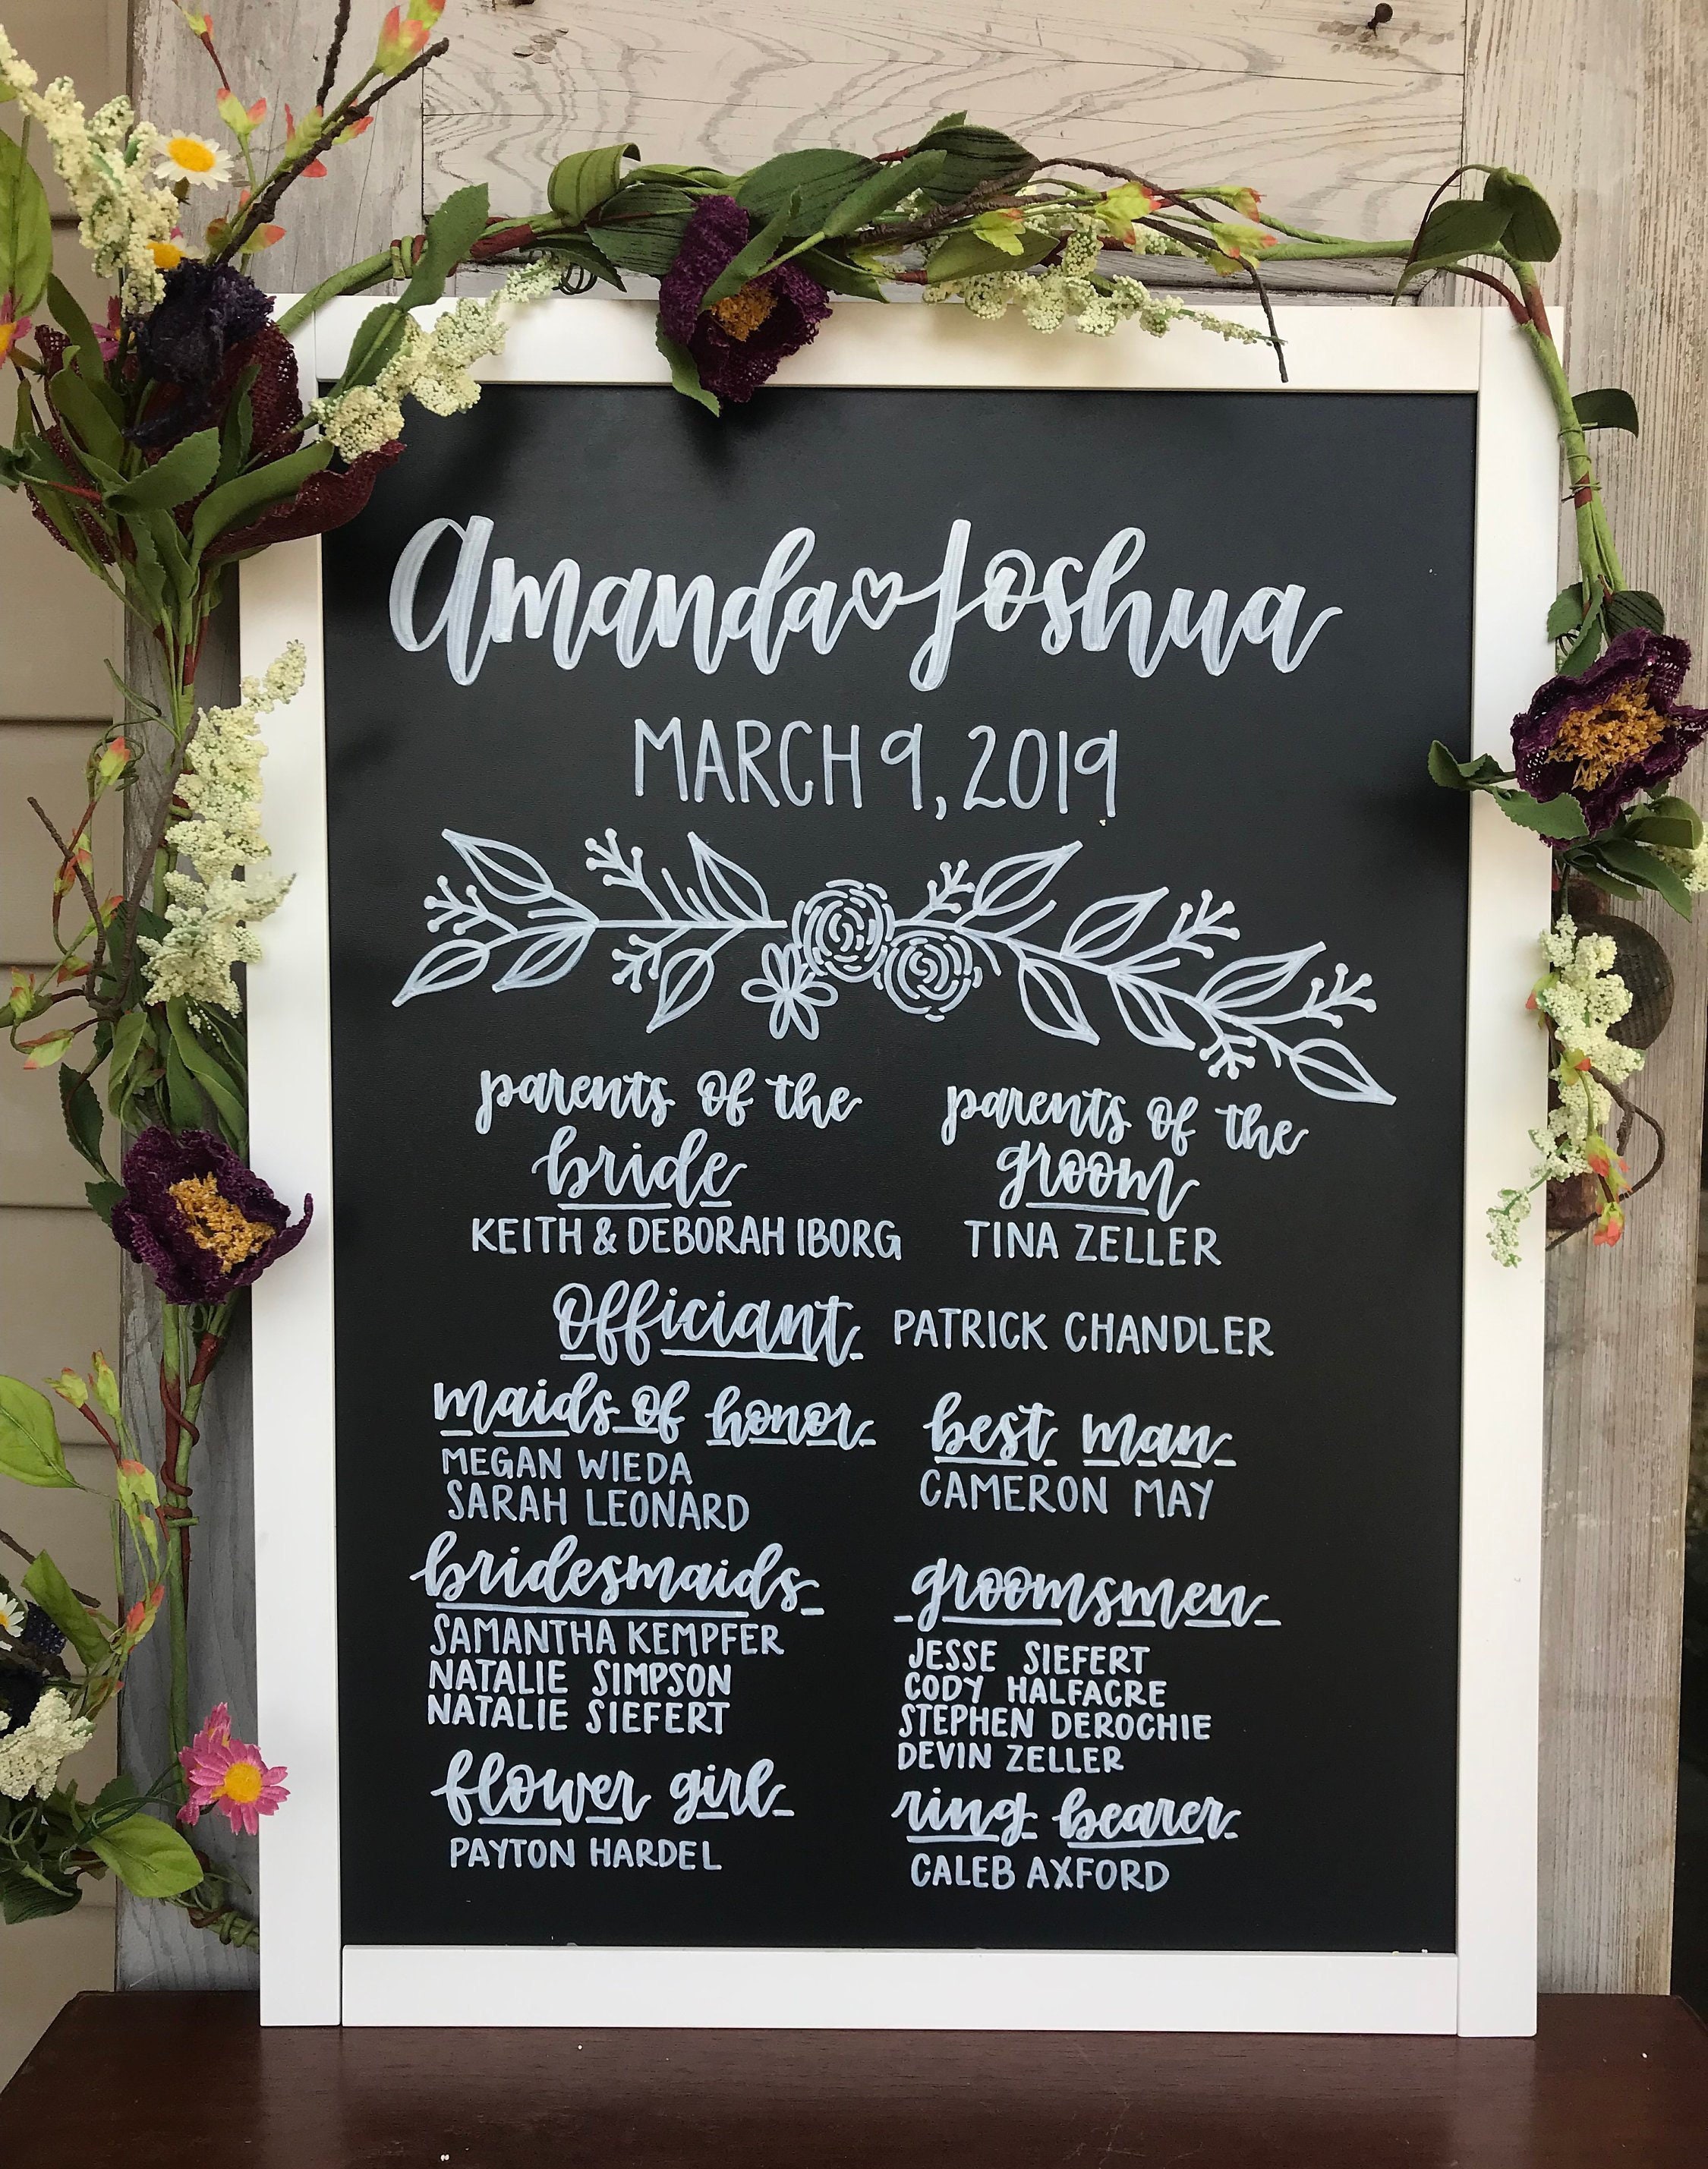 Amanda♡Joshua
MARCH 9, 2019
parents of the
bride
KEITH & DEBORAH IBORG
parents of the
groom
TINA ZELLER
Officiant PATRICK CHANDLER
maids of honor
MEGAN WIEDA
SARAH LEONARD
best man
CAMERON MAY
bridesmaids
SAMANTHA KEMPFER
NATALIE SIMPSON
NATALIE SIEFERT
groomsmen
JESSE SIEFERT
CODY HALFACRE
STEPHEN DEROCHIE
DEVIN ZELLER
flower girl
PAYTON HARDEL
ring bearer
CALEB AXFORD